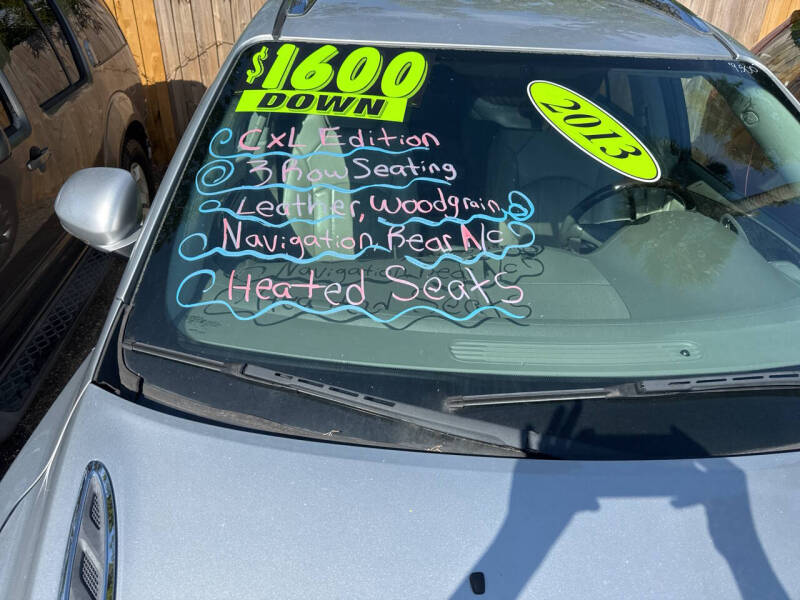 $1600
DOWN
2013
CXL Edition
3 Row Seating
Leather, Woodgrain,
Navigation, Rear AC
Heated Seats